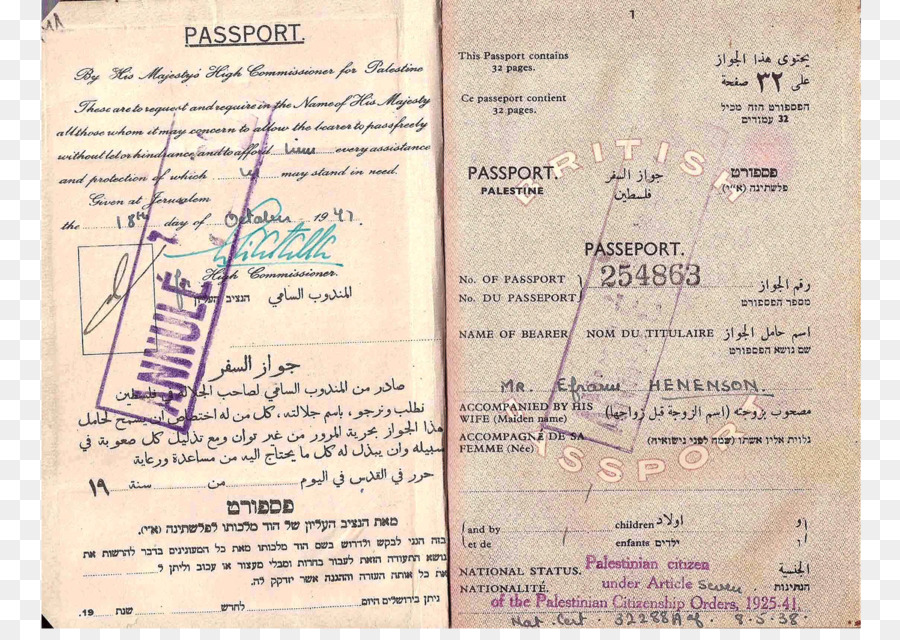 PASSPORT.
By His Majesty's High Commissioner for Palestine
These are to request and require in the Name of His Majesty
all those whom it may concern to allow the bearer to pass freely
without let or hindrance and to afford him every assistance
and protection of which he may stand in need.
Given at Jerusalem
the 18th day of October 1941.
High Commissioner.
المندوب السامي הנציב העליון
ANNULE
جواز السفر
صادر من المندوب السامي لصاحب الجلالة في فلسطين
نطلب ونرجو، باسم جلالته، كل من له اختصاص ان يسمح لحامل
هذا الجواز بحرية المرور من غير توان ومع تذليل كل صعوبة في
سبيله وان يبذل له كل ما يحتاج اليه من مساعدة ورعاية
حرر في القدس في اليوم من سنة ١٩
פספורט
מאת הנציב העליון של הוד מלכותו לפלשתינה (א״י).
בזה הנני לבקש ולדרוש בשם הוד מלכותו מאת כל המעונינים בדבר להרשות את
נושא התעודה הזאת לעבור בחרות ומבלי מעצור או עכוב וליתן ל
את כל אותה העזרה וההגנה אשר יזדקק לה.
ניתן בירושלים היום לחדש שנת 19.
1
This Passport contains
32 pages.
يحتوي هذا الجواز
على ٣٢ صفحة
Ce passeport contient
32 pages.
הפספורט הזה מכיל
32 עמודים
BRITISH
PASSPORT.
PALESTINE
جواز السفر
فلسطين
פספורט
פלשתינה (א״י)
PASSEPORT.
No. OF PASSPORT
No. DU PASSEPORT
254863
رقم الجواز
מספר הפספורט
NAME OF BEARER NOM DU TITULAIRE اسم حامل الجواز
שם נושא הפספורט
MR. Efraim HENENSON.
ACCOMPANIED BY HIS
WIFE (Maiden name)
مصحوب بزوجته (اسم الزوجة قبل زواجها)
ACCOMPAGNÉ DE SA
FEMME (Née)
נלוית אליו אשתו (שמה לפני נישואיה)
PASSPORT
and by children اولاد و
et de enfants ילדים ו
NATIONAL STATUS. الجنسية
NATIONALITÉ. הנתינות
Palestinian citizen
under Article Seven
of the Palestinian Citizenship Orders, 1925-41.
Nat. Cert. 32288A of 8.5.38.